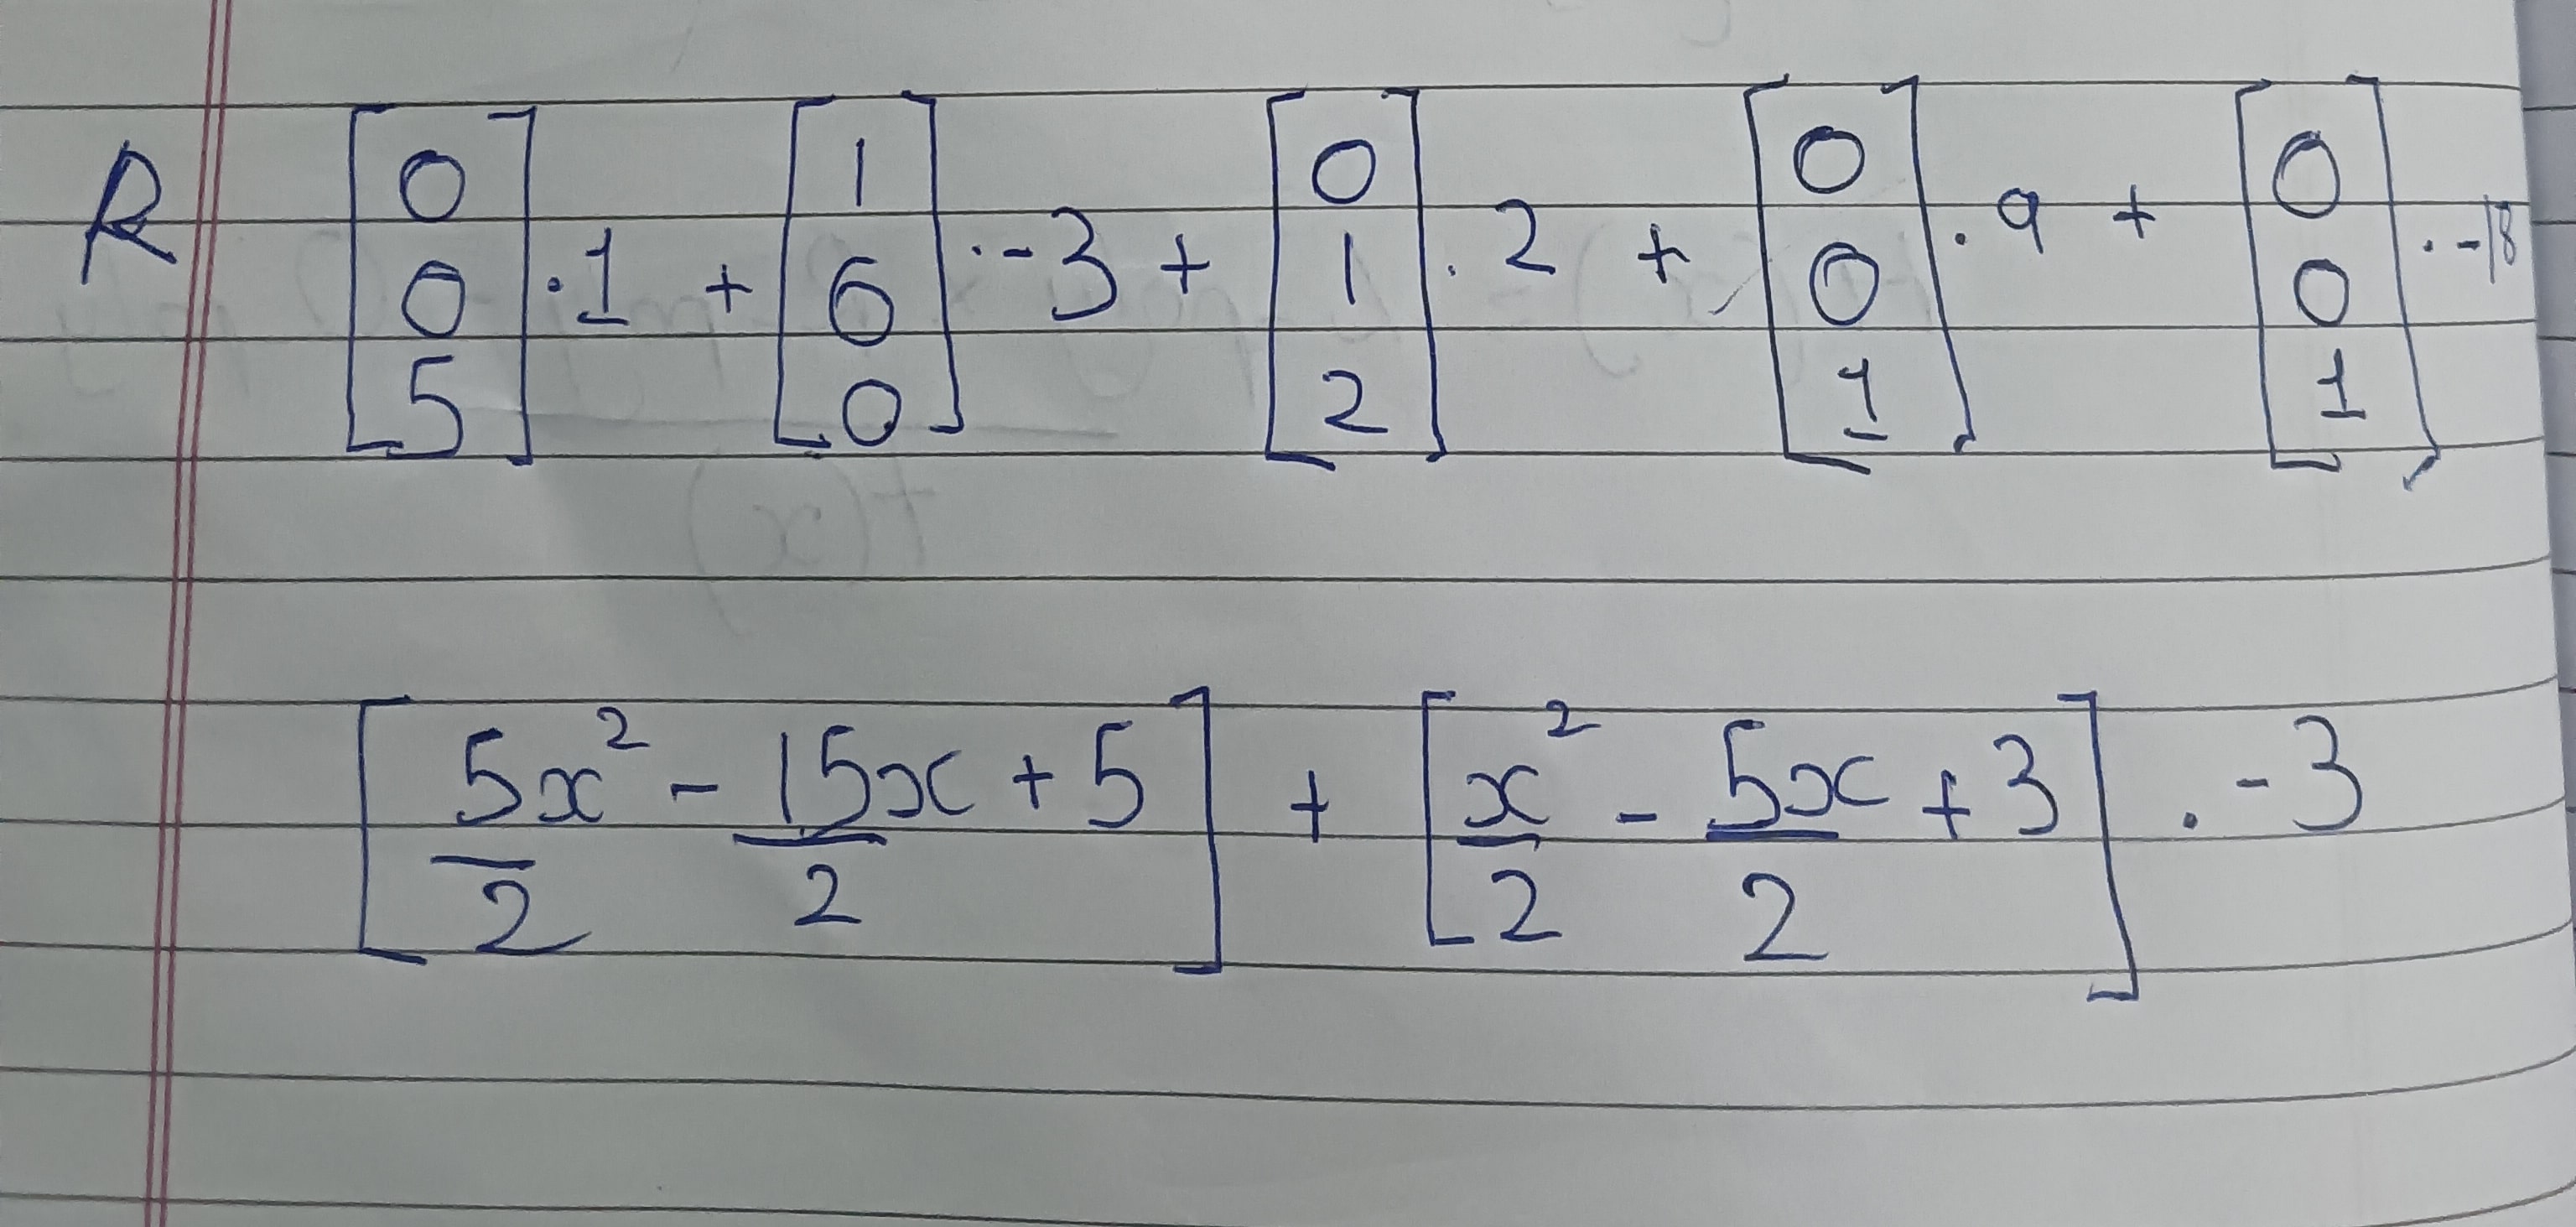 R [0 0 5] · 1 + [1 6 0] · -3 + [0 1 2] · 2 + [0 0 1] · 9 + [0 0 1] · -18
[5x²/2 - 15x/2 + 5] + [x²/2 - 5x/2 + 3] · -3